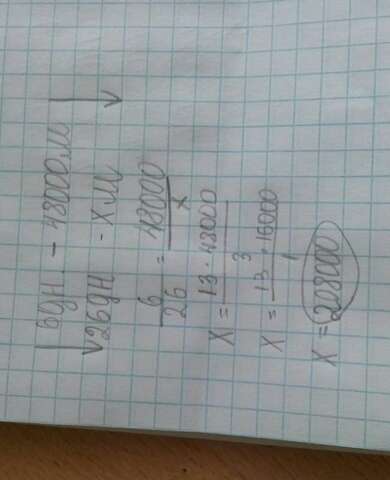 6дн. - 48000м
26дн - xм
6/26 = 48000/x
x = 13·48000/3
x = 13·16000/1
x = 208000